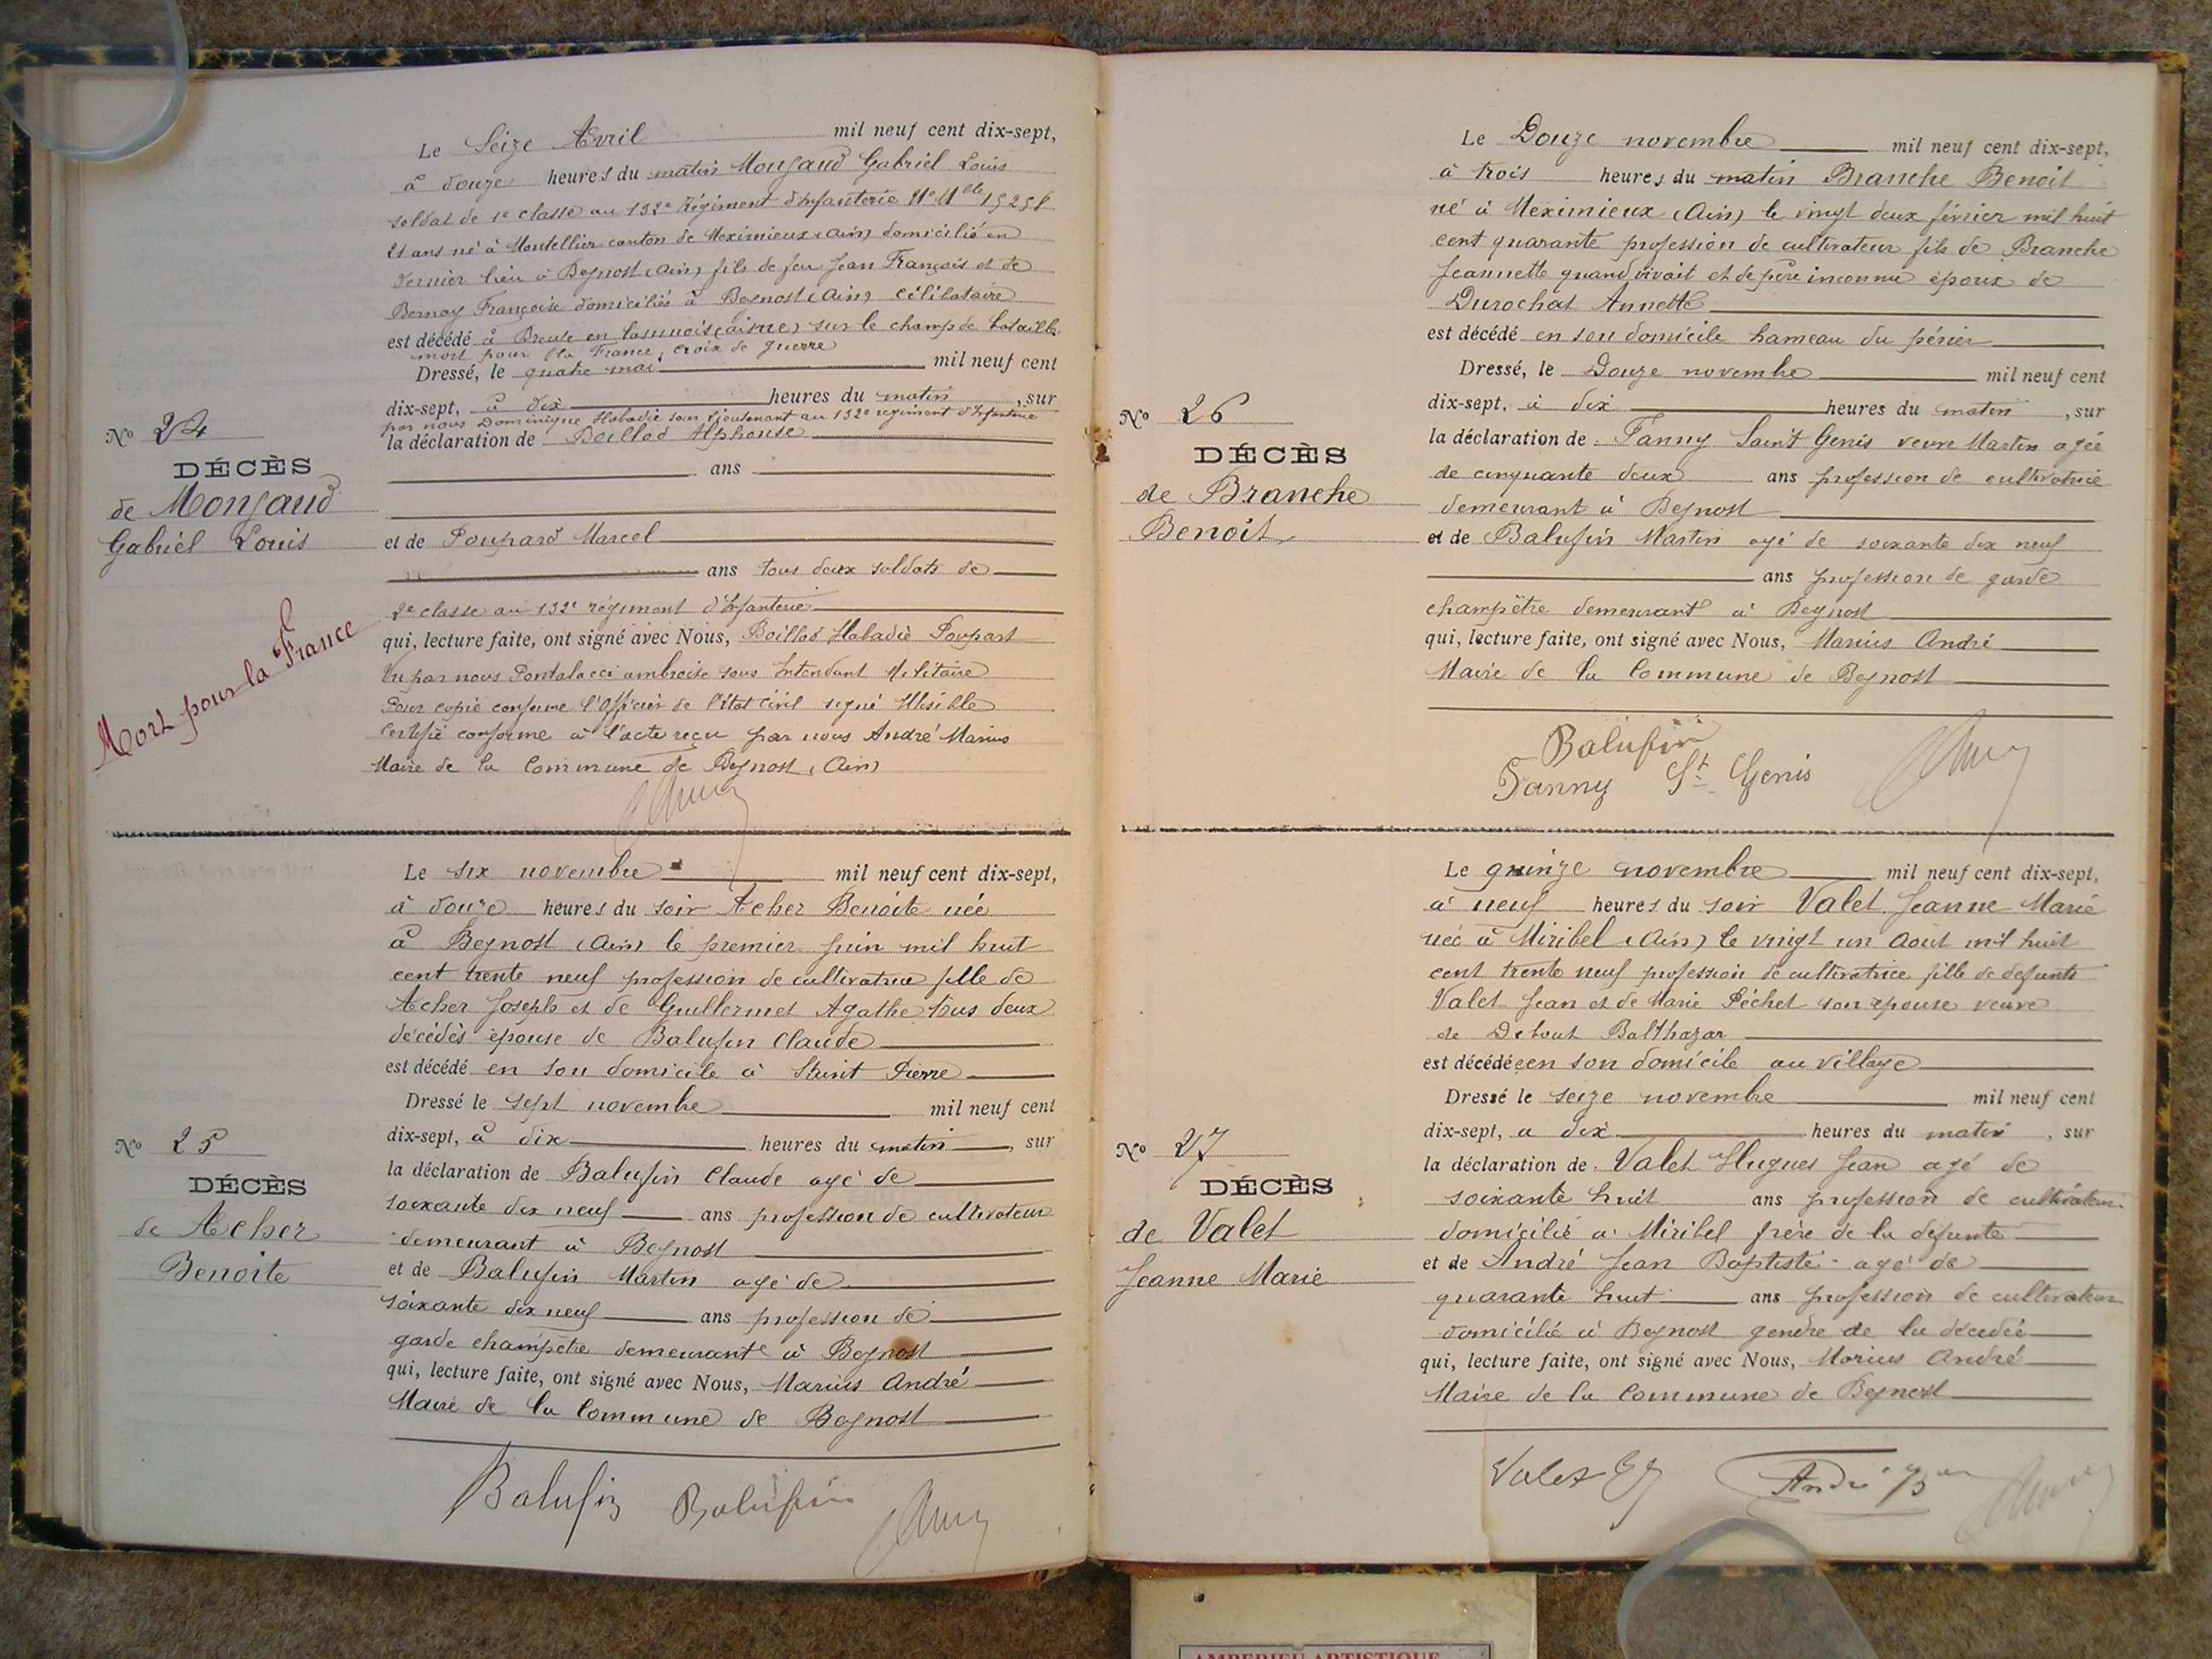 Le Seize Avril mil neuf cent dix-sept,
à douze heures du matin Monjaud Gabriel Louis
soldat de 1e classe au 132e Régiment d'Infanterie No Mle 15258
21 ans né à Montellier canton de Meximieux (Ain) domicilié en
dernier lieu à Beynost (Ain) fils de feu Jean François et de
Bernay Françoise domiciliés à Beynost (Ain) célibataire
est décédé à en (aisne) sur le champ de bataille
mort pour la France, croix de guerre
Dressé, le quatre mai mil neuf cent
dix-sept, à dix heures du matin, sur
par nous Dominique Haladié sous lieutenant au 132e régiment d'Infanterie
la déclaration de Boillod Alphonse
ans
et de Poupard Marcel
ans tous deux soldats de
2e classe au 132e régiment d'Infanterie
qui, lecture faite, ont signé avec Nous, Boillod Haladié Poupart
Vu par nous Pontalacci ambroise sous Intendant Militaire
Pour copie conforme l'Officier de l'état civil signé Illisible
Certifié conforme à l'acte reçu par nous André Marius
Maire de la Commune de Beynost (Ain)
No 24
DÉCÈS
de Monjaud
Gabriel Louis
Mort pour la France
Le six novembre mil neuf cent dix-sept,
à douze heures du soir Acher Benoite née
à Beynost (Ain) le premier juin mil huit
cent trente neuf profession de cultivatrice fille de
Acher Joseph et de Guillermet Agathe tous deux
décédés épouse de Balufin Claude
est décédé en son domicile à Saint Pierre
Dressé le sept novembre mil neuf cent
dix-sept, à dix heures du matin, sur
la déclaration de Balufin Claude agé de
soixante dix neuf ans profession de cultivateur
demeurant à Beynost
et de Balufin Martin agé de
soixante dix neuf ans profession de
garde champêtre demeurant à Beynost
qui, lecture faite, ont signé avec Nous, Marius André
Maire de la Commune de Beynost
Balufin Balufin
No 25
DÉCÈS
de Acher
Benoite
Le Douze novembre mil neuf cent dix-sept,
à trois heures du matin Branche Benoit
né à Meximieux (Ain) le vingt deux février mil huit
cent quarante profession de cultivateur fils de Branche
Jeannette quand vivait et de père inconnu époux de
Durochat Annette
est décédé en son domicile hameau du périer
Dressé, le Douze novembre mil neuf cent
dix-sept, à dix heures du matin, sur
la déclaration de Fanny Saint Genis veuve Martin agée
de cinquante deux ans profession de cultivatrice
demeurant à Beynost
et de Balufin Martin agé de soixante dix neuf
ans profession de garde
champêtre demeurant à Beynost
qui, lecture faite, ont signé avec Nous, Marius André
Maire de la Commune de Beynost
Balufin
Fanny St Genis
No 26
DÉCÈS
de Branche
Benoit
Le quinze novembre mil neuf cent dix-sept,
à neuf heures du soir Valet Jeanne Marie
née à Miribel (Ain) le vingt un Aout mil huit
cent trente neuf profession de cultivatrice fille de defunts
Valet Jean et de Marie Péchet son epouse veuve
de Debout Balthazar
est décédée en son domicile au village
Dressé le seize novembre mil neuf cent
dix-sept, à dix heures du matin, sur
la déclaration de Valet Hugues Jean agé de
soixante huit ans profession de cultivateur
domicilié à Miribel frère de la défunte
et de André Jean Baptiste agé de
quarante huit ans profession de cultivateur
domicilié à Beynost gendre de la décédée
qui, lecture faite, ont signé avec Nous, Marius André
Maire de la Commune de Beynost
Valet André
No 27
DÉCÈS
de Valet
Jeanne Marie
AMBERIEU ARTISTIQUE